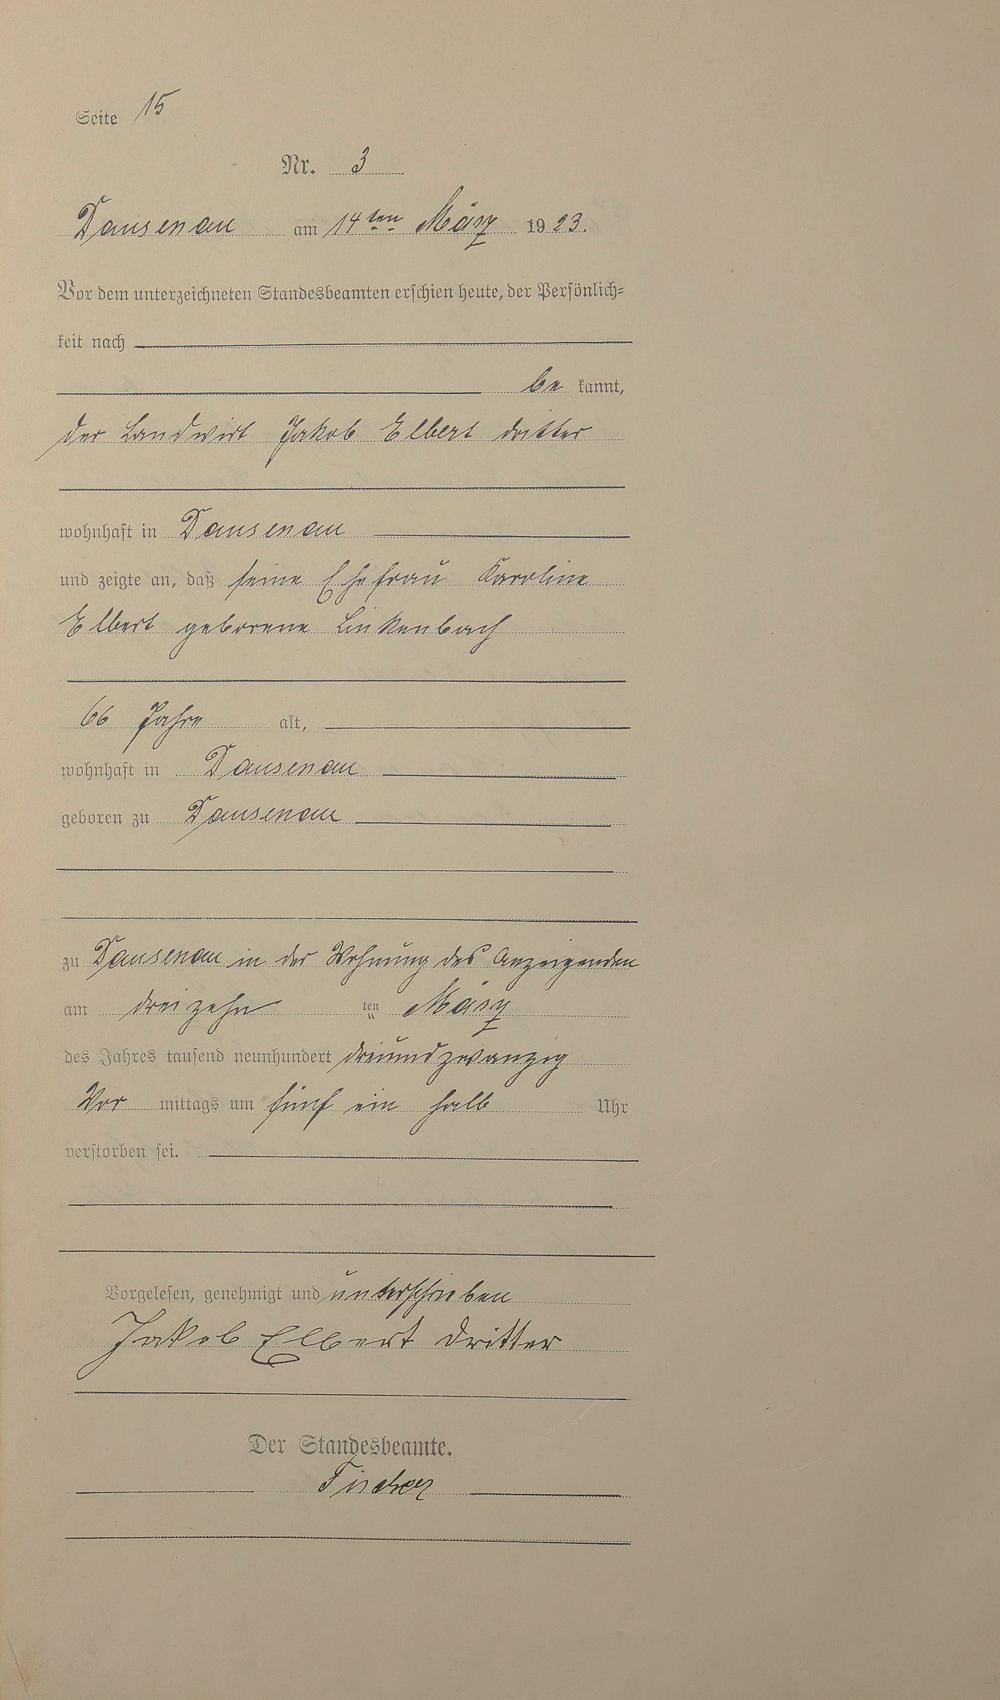 Seite 15
Nr. 3
Dausenau am 14ten März 1923.
Vor dem unterzeichneten Standesbeamten erschien heute, der Persönlich-
keit nach
be kannt,
der Landwirt Jakob Elbert dritter
wohnhaft in Dausenau
und zeigte an, daß seine Ehefrau Karoline
Elbert geborene Linkenbach
66 Jahre alt,
wohnhaft in Dausenau
geboren zu Dausenau
zu Dausenau in der Wohnung des Anzeigenden
am dreizehn ten März
des Jahres tausend neunhundert dreiundzwanzig
Vor mittags um fünf ein halb Uhr
verstorben sei.
Vorgelesen, genehmigt und unterschrieben
Jakob Elbert dritter
Der Standesbeamte.